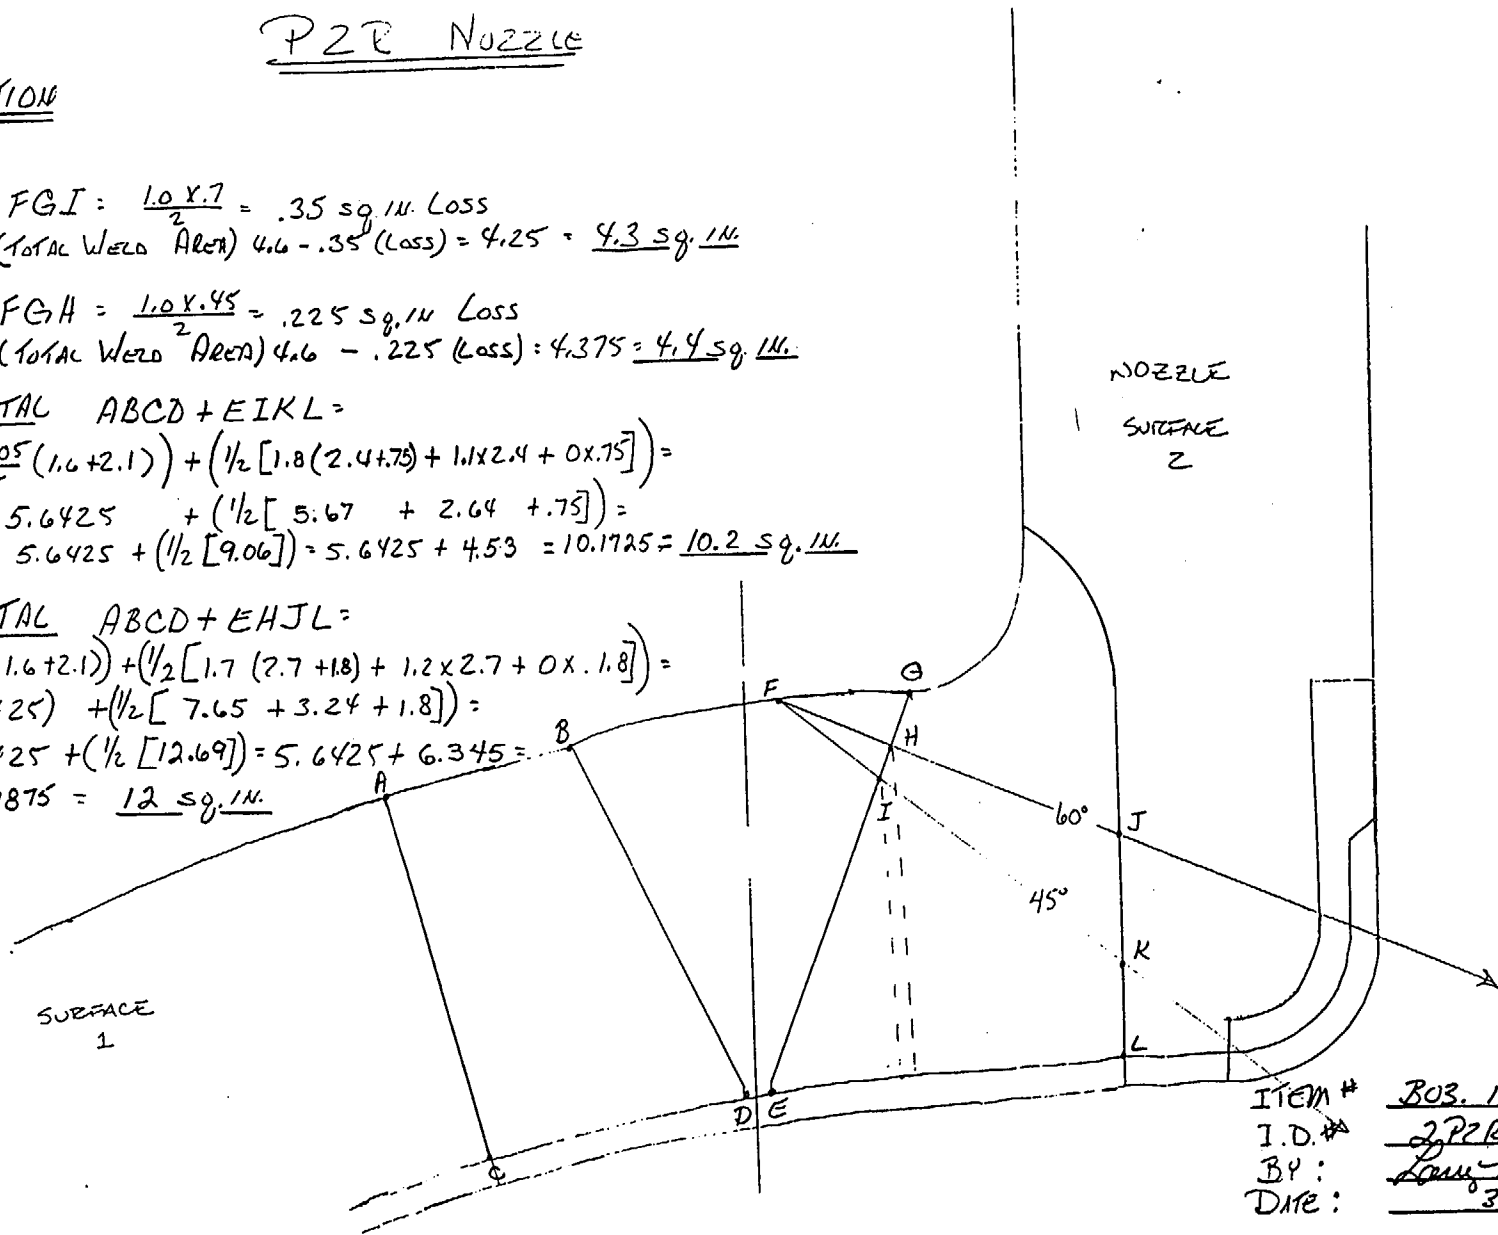 PZR NOZZLE
TION
FGI: 1.0 X .7 / 2 = .35 sq. IN. LOSS
(TOTAL WELD AREA) 4.6 - .35 (LOSS) = 4.25 = 4.3 sq. IN.
FGH = 1.0 X .45 / 2 = .225 sq. IN LOSS
(TOTAL WELD AREA) 4.6 - .225 (LOSS) = 4.375 = 4.4 sq. IN.
TAL ABCD + EIKL =
05 (1.6 + 2.1)) + (1/2 [1.8 (2.4 + .75) + 1.1 x 2.4 + 0 x .75]) =
5.6425 + (1/2 [ 5.67 + 2.64 + .75]) =
5.6425 + (1/2 [9.06]) = 5.6425 + 4.53 = 10.1725 = 10.2 sq. IN.
TAL ABCD + EHJL =
1.6 + 2.1)) + (1/2 [1.7 (2.7 + 1.8) + 1.2 x 2.7 + 0 x . 1.8]) =
25) + (1/2 [ 7.65 + 3.24 + 1.8]) =
25 + (1/2 [12.69]) = 5.6425 + 6.345 =
9875 = 12 sq. IN.
NOZZLE
SURFACE
2
A
B
F
G
H
I
60°
J
45°
K
L
D E
C
SURFACE
1
ITEM # B03. 1
I.D. # 2PZR
BY:
DATE: 3